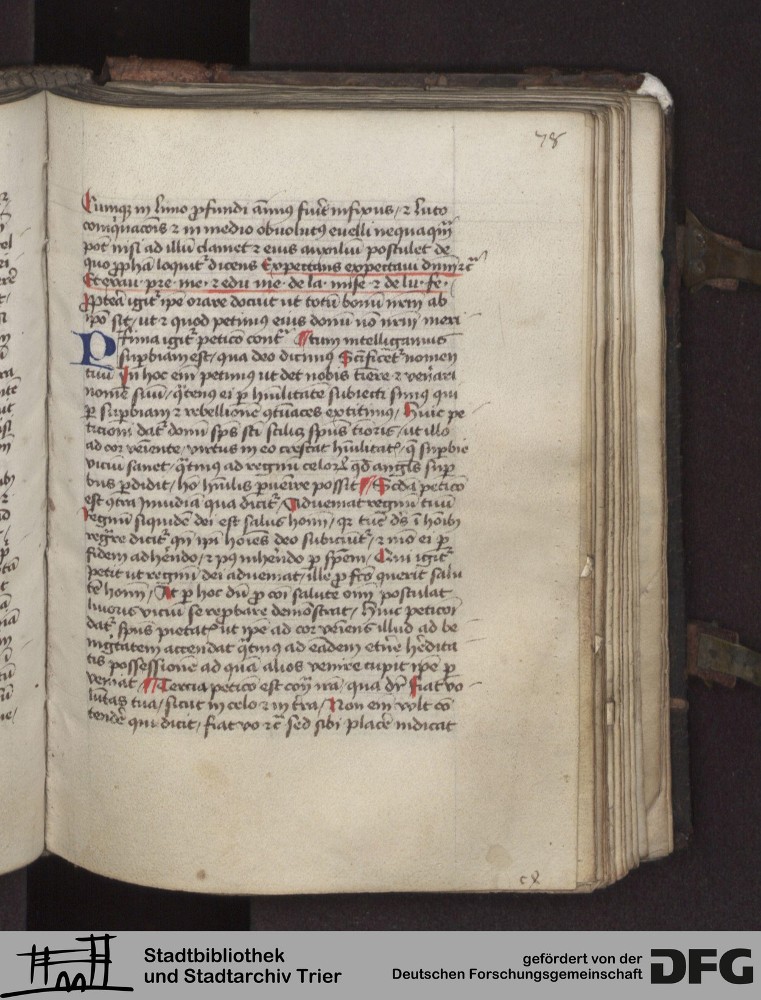 78
Cumqꝫ in limo ꝓfundi aīmꝰ fuīt infixus / ⁊ luto
⁊ in medio obuolutꝰ euelli nequaqm̄
pōt nisi ad illū clamet ⁊ eius auxiliū postulet de
quo ꝓpha loquitᷣ dicens Expectans expectaui dnm̄ ⁊c̄
Et exau · pre · me · ⁊ edu me · de la · mise · ⁊ de lu · fe ·
Ꝓptea igitᷣ ipe orare docuit ut totū bonū nrm̄ ab
ipo sit / ut ⁊ quod petimꝰ eius donū nō nrm̄ meri
tum intelligamus
Prima igitᷣ peticō contᷣ
suꝑbiam est / qua deo dicimꝰ Scificetᷣ nomen
tuū In hoc em̄ petimꝰ ut det nobis tiere ⁊ veīari
nomē suū / qͣtenꝰ ei ꝑ huīlitate subiecti simꝰ qui
ꝑ suꝑbiam ⁊ rebellionē extitimꝰ / Huic pe
ticioni datᷣ donū sp̄s sc̄i scilicꝫ spūs tioris / ut illo
ad cor veīente / virtus in eo crescat huīlitatꝭ / q̄ suꝑbie
viciū sanet / qͣtinꝰ ad regnū celoꝝ qd̄ angls̄ suꝑ
bus ꝑdidit / ho huīlis ꝑuenire possit Scd̄a peticō
est ꝯtra Inuidiā qua dicitᷣ / Adueniat regnū tuū
regnū siquidē dei est salus homī / qꝛ tūc d̄s ī hoībꝫ
regͣre dicitᷣ qn̄ ipi hoīes deo subiciūtᷣ / ⁊ mō ei ꝑ
fidem adhērēdo / ⁊ pꝰ inhērēdo ꝑ spem / Qui igitᷣ
petit ut regnū dei adueniat / ille ꝓ fcō querit salu
tē homī / At ꝑ hoc dū ꝓ cōi salute oīm postulat
liuoris viciū se reꝓbare demōstrat / Huic peticōi
datᷣ spūs pietatꝭ ut ipe ad cor veīens illud ad be
nignitatem accendat qͣtinꝰ ad eādem et̄ne hēdita
tis possessionē ad quā alios venire cupit ipe ꝑ
veniat / Tercia peticō est cont̄ irā / qua dr̄ fiat vo
lūtas tua / sicut in celo ⁊ in tra / Non em̄ vult cō
tendē qui dicit / fiat vo ⁊c̄ sed sibi placē indicat
Stadtbibliothek
und Stadtarchiv Trier
gefördert von der
Deutschen Forschungsgemeinschaft
DFG